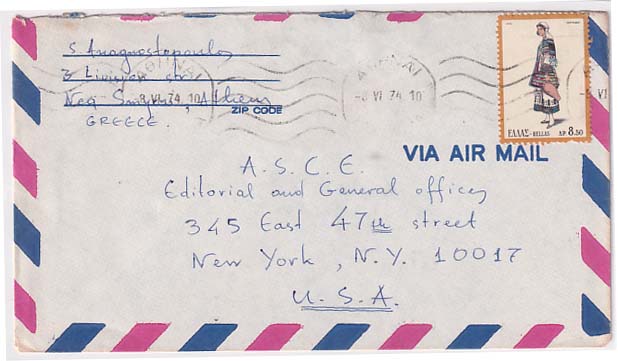 S. Anagnostopoulos
3 str.
Nea Smyrni, Athens
ZIP CODE
GREECE.
ΑΘΗΝΑΙ
-8 VI 74 10
ΑΘΗΝΑΙ
-8 VI 74 10
-8 VI
ΕΛΛΑΣ-HELLAS ΔΡ. 8.50
VIA AIR MAIL
A.S.C.E.
Editorial and General offices
345 East 47th street
New York, N.Y. 10017
U.S.A.